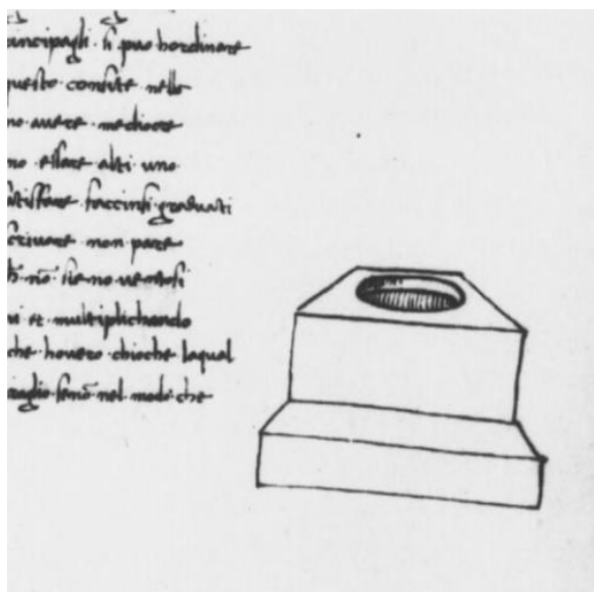 principagli · si puo hordinare
questo consite nelle
no avere · mediocre
no · essere alti uno
faccinsi · graduati
scrivare · non pare
no · sie no ventosi
ni et · multiplichando
che · hovero · chioche laqual
nel modo · che